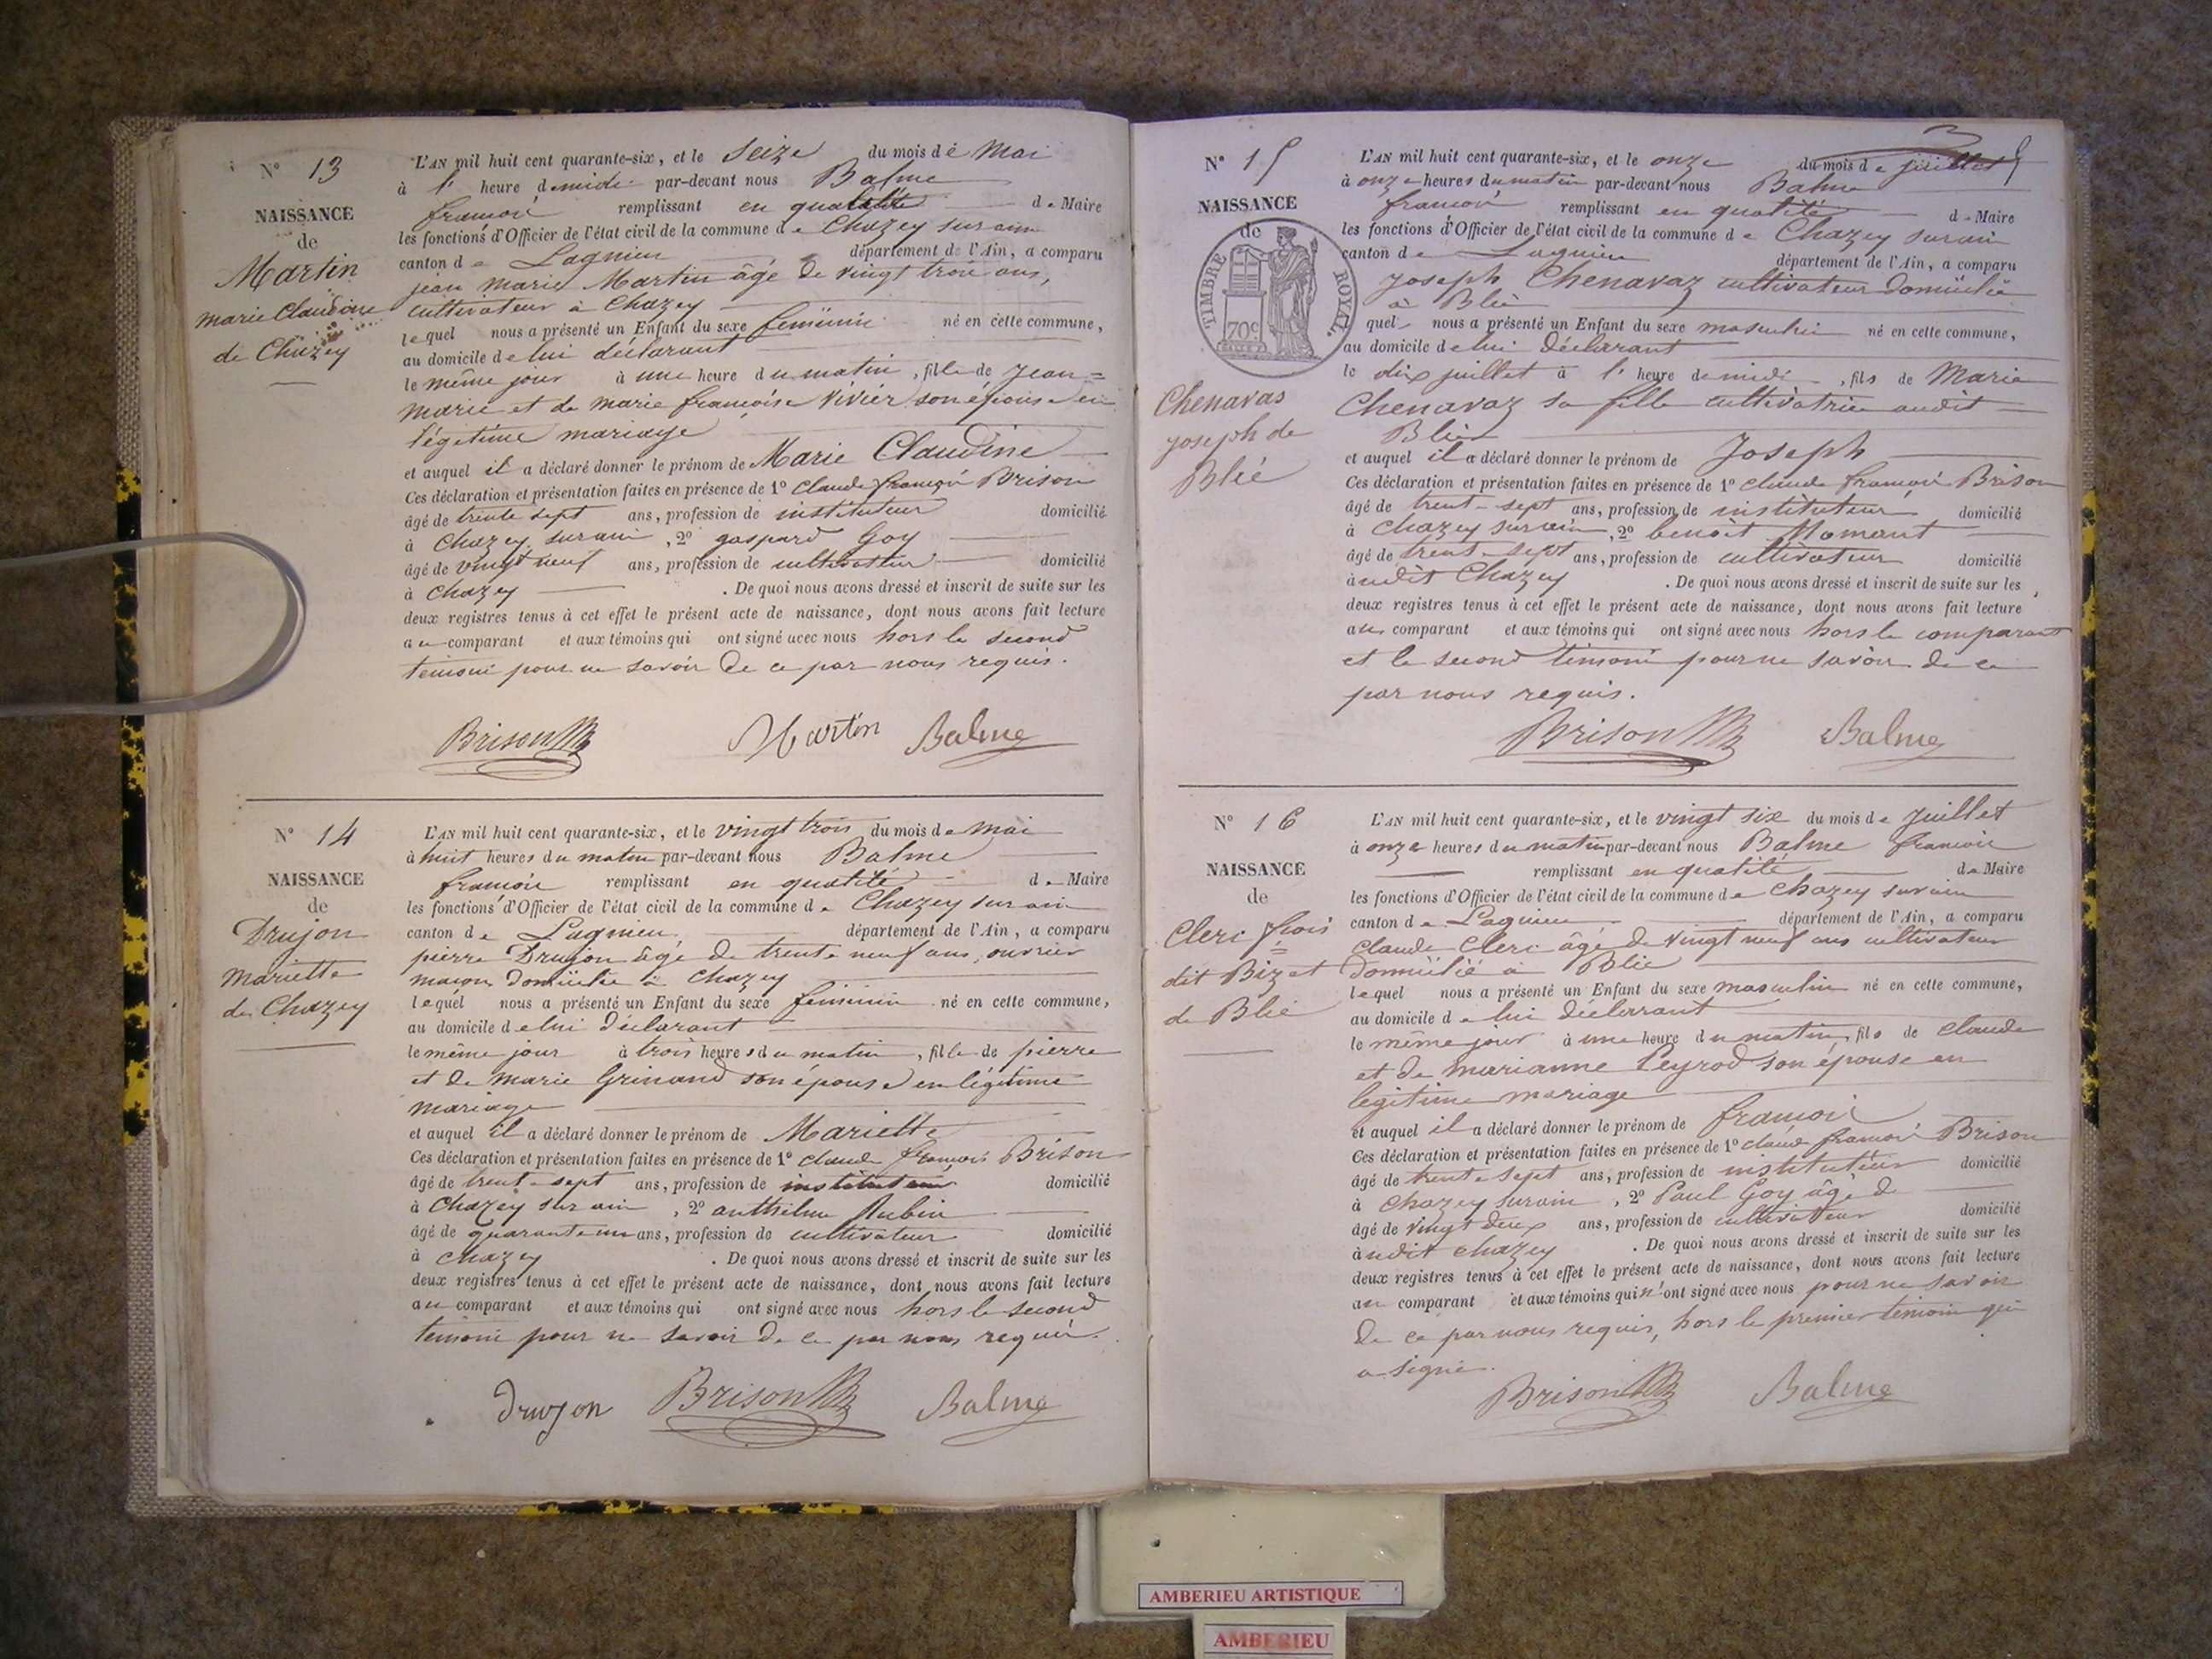 N° 13
NAISSANCE
de
Martin
marie Claudine
de Chazey
L'AN mil huit cent quarante-six, et le Seize du mois de Mai
à 1' heure de midi par-devant nous Balme
françois remplissant en qualité de Maire
les fonctions d'Officier de l'état civil de la commune de Chazey sur ain
canton de Lagnieu département de l'Ain, a comparu
jean marie Martin âgé de vingt trois ans,
cultivateur à Chazey
lequel nous a présenté un Enfant du sexe feminin né en cette commune,
au domicile de lui déclarant
le même jour à une heure du matin, fille de Jean=
marie et de marie françoise Vivier son épouse en
légitime mariage
et auquel il a déclaré donner le prénom de Marie Claudine
Ces déclaration et présentation faites en présence de 1° Claude françois Brison
âgé de trente sept ans, profession de instituteur domicilié
à Chazey sur ain, 2° gaspard Goy
âgé de vingt neuf ans, profession de cultivateur domicilié
à Chazey. De quoi nous avons dressé et inscrit de suite sur les
deux registres tenus à cet effet le présent acte de naissance, dont nous avons fait lecture
au comparant et aux témoins qui ont signé avec nous hors le second
temoin pour ne savoir de ce par nous requis.
Brison Martin Balme
N° 14
NAISSANCE
de
Drujon
Mariette
de Chazey
L'AN mil huit cent quarante-six, et le vingt trois du mois de mai
à huit heures du matin par-devant nous Balme
françois remplissant en qualité de Maire
les fonctions d'Officier de l'état civil de la commune de Chazey sur ain
canton de Lagnieu département de l'Ain, a comparu
pierre Drujon âgé de trente neuf ans, ouvrier
maçon domicilié à Chazey
lequel nous a présenté un Enfant du sexe féminin né en cette commune,
au domicile de lui déclarant
le même jour à trois heures du matin, fille de pierre
et de Marie Grinand son épouse en légitime
mariage
et auquel il a déclaré donner le prénom de Mariette
Ces déclaration et présentation faites en présence de 1° Claude françois Brison
âgé de trente-sept ans, profession de instituteur domicilié
à Chazey sur ain, 2° anthelme Rubin
âgé de quarante un ans, profession de cultivateur domicilié
à Chazey. De quoi nous avons dressé et inscrit de suite sur les
deux registres tenus à cet effet le présent acte de naissance, dont nous avons fait lecture
au comparant et aux témoins qui ont signé avec nous hors le second
temoin pour ne savoir de ce par nous requis.
Drujon Brison Balme
N° 15
NAISSANCE
de
TIMBRE ROYAL.
70c
Chenavas
joseph de
Blié
L'AN mil huit cent quarante-six, et le onze du mois de juillet
à onze heures du matin par-devant nous Balme
françois remplissant en qualité de Maire
les fonctions d'Officier de l'état civil de la commune de Chazey sur ain
canton de Lagnieu département de l'Ain, a comparu
Joseph Chenavaz cultivateur domicilié
à Blié
quel nous a présenté un Enfant du sexe masculin né en cette commune,
au domicile de lui déclarant
le dix juillet à 1' heure de midi, fils de Marie
Chenavaz sa fille cultivatrice audit
Blié
et auquel il a déclaré donner le prénom de Joseph
Ces déclaration et présentation faites en présence de 1° Claude françois Brison
âgé de trente-sept ans, profession de instituteur domicilié
à Chazey sur ain, 2° benoit Momant
âgé de trente-sept ans, profession de cultivateur domicilié
à udit Chazey. De quoi nous avons dressé et inscrit de suite sur les
deux registres tenus à cet effet le présent acte de naissance, dont nous avons fait lecture
au comparant et aux témoins qui ont signé avec nous hors le comparant
et le second temoin pour ne savoir de ce
par nous requis.
Brison Balme
N° 16
NAISSANCE
de
Cleri fçois
dit Bizet
de Blié
L'AN mil huit cent quarante-six, et le vingt six du mois de juillet
à onze heures du matin par-devant nous Balme françois
remplissant en qualité de Maire
les fonctions d'Officier de l'état civil de la commune de Chazey sur ain
canton de Lagnieu département de l'Ain, a comparu
Claude Cleri âgé de vingt neuf ans cultivateur
domicilié à Blié
lequel nous a présenté un Enfant du sexe masculin né en cette commune,
au domicile de lui déclarant
le même jour à une heure du matin fils de Claude
et de marianne Peyrod son épouse en
legitime mariage
et auquel il a déclaré donner le prénom de françois
Ces déclaration et présentation faites en présence de 1° Claude françois Brison
âgé de trente sept ans, profession de instituteur domicilié
à Chazey sur ain, 2° Paul Goy âgé de
âgé de vingt deux ans, profession de cultivateur domicilié
à udit Chazey. De quoi nous avons dressé et inscrit de suite sur les
deux registres tenus à cet effet le présent acte de naissance, dont nous avons fait lecture
au comparant et aux témoins qui n'ont signé avec nous pour ne savoir
de ce par nous requis, hors le premier temoin qui
a signé.
Brison Balme
AMBERIEU ARTISTIQUE
AMBERIEU